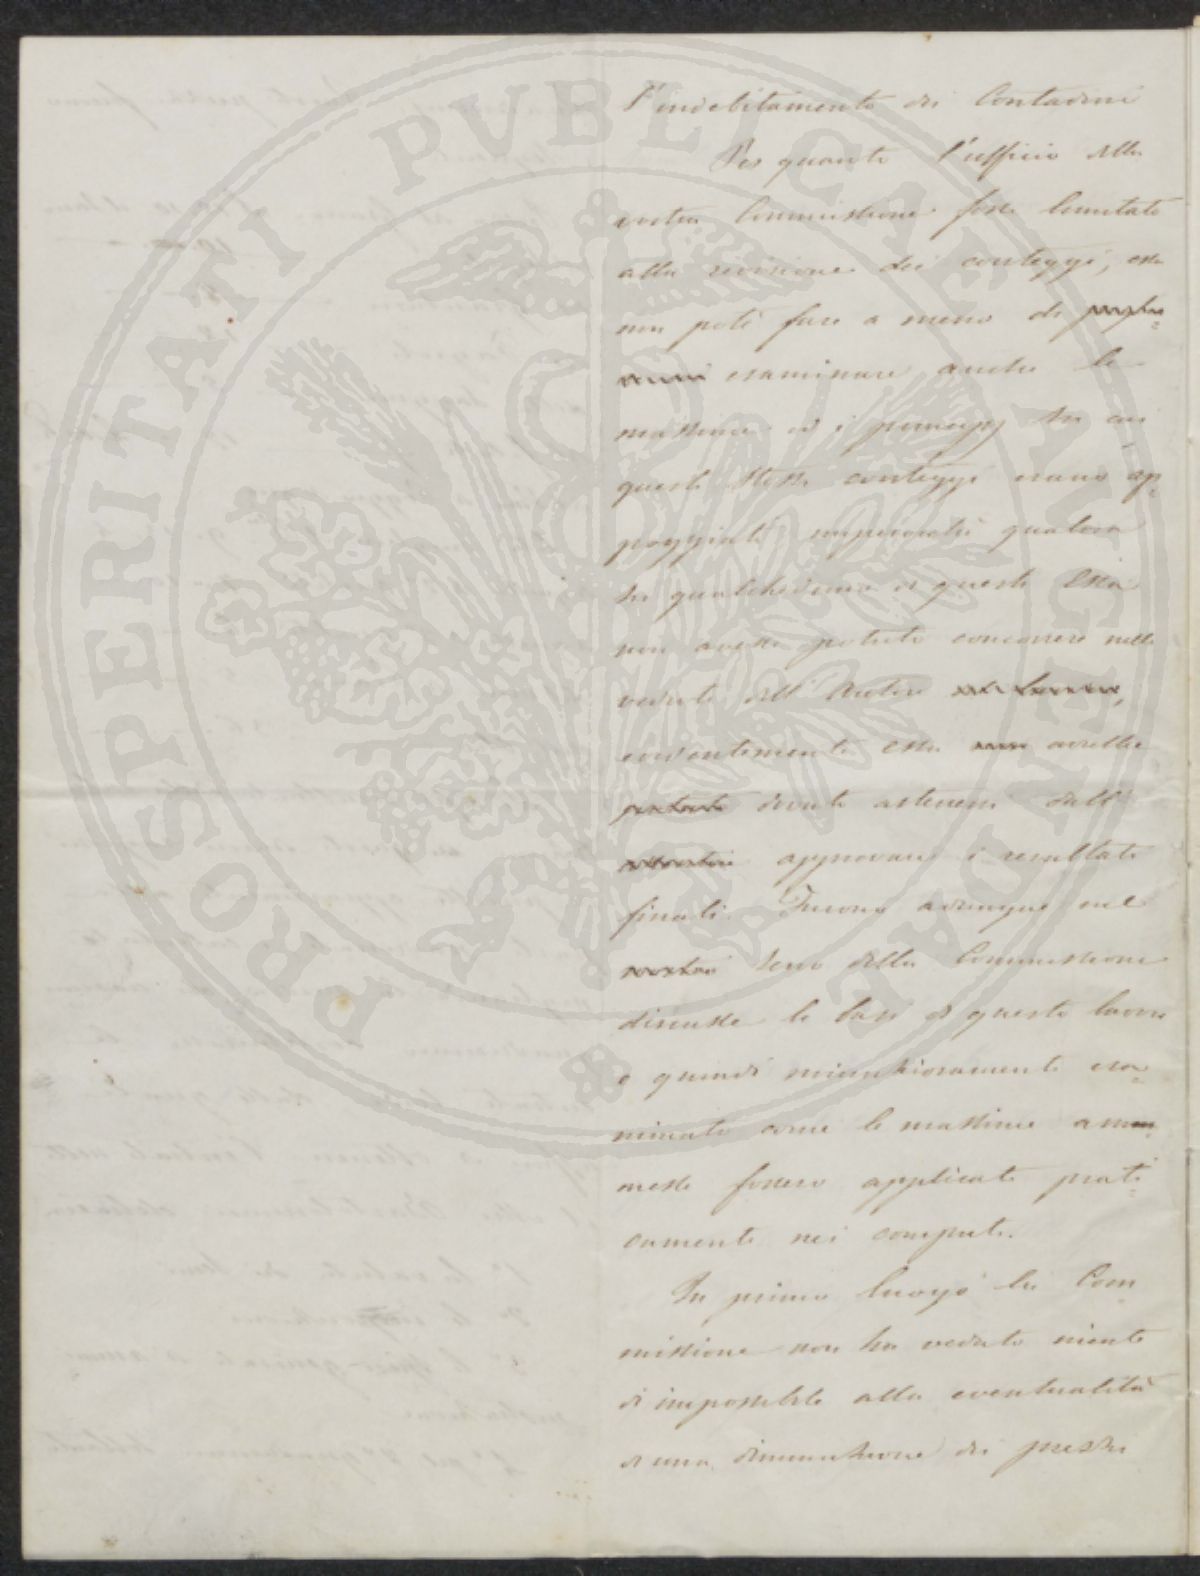 l'indebitamento dei Contadini
Per quanto l'ufficio della
vostra Commissione fosse limitato
alla revisione dei conteggi, essa
non potè fare a meno di
esaminare anche le
massime ed i principj su cui
questi stessi conteggi erano ap=
poggiati imperocchè qualora
su qualcheduno di questi Essa
non avesse potuto concorrere nelle
vedute dell'Autore
evidentemente essa non avrebbe
potuto dovuto astenersi dall'
approvare i resultati
finali. Furono adunque nel
seno della Commissione
discusse le basi di questo lavoro
e quindi minuziosamente esa=
minato come le massime am
messe fossero applicate prati=
camente nei computi.
In primo luogo la Com
missione non ha veduto niente
di impossibile alla eventualità
di una diminuzione di prezzi
PROSPERITATI PVBLICAE AVGENDAE